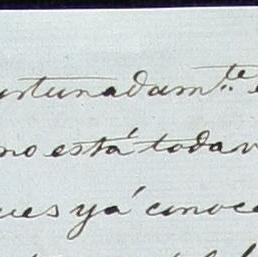 rtunadam.te
no está todav
ues yá conoce